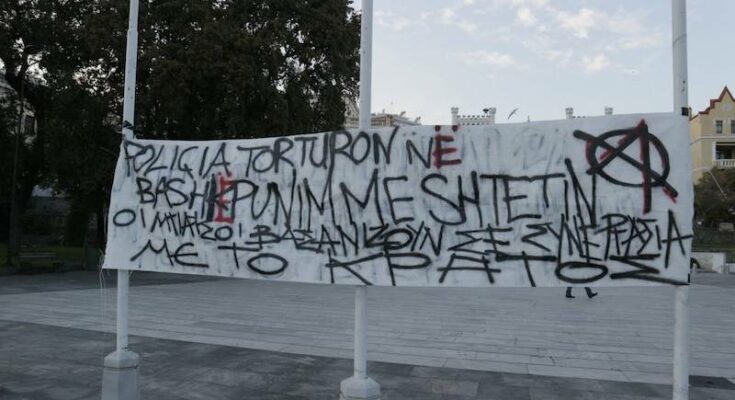 POLICIA TORTURON NË
BASHKËPUNIM ME SHTETIN
ΟΙ ΜΠΑΤΣΟΙ ΒΑΣΑΝΙΖΟΥΝ ΣΕ ΣΥΝΕΡΓΑΣΙΑ
ΜΕ ΤΟ ΚΡΑΤΟΣ